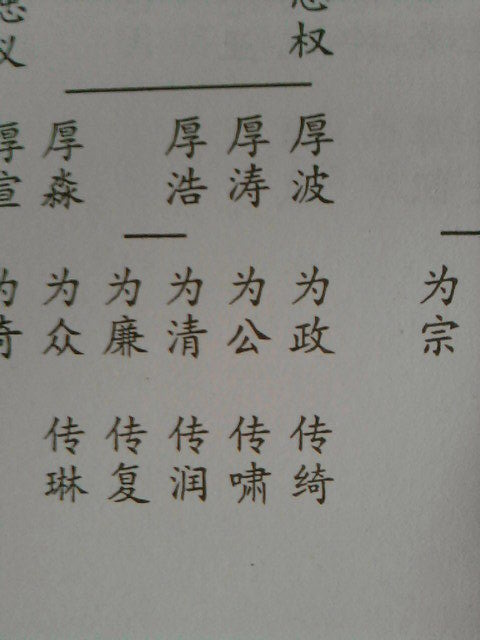 权
厚波
厚涛
厚浩
厚森
为宗
为政
为公
为清
为廉
为众
传绮
传啸
传润
传复
传琳